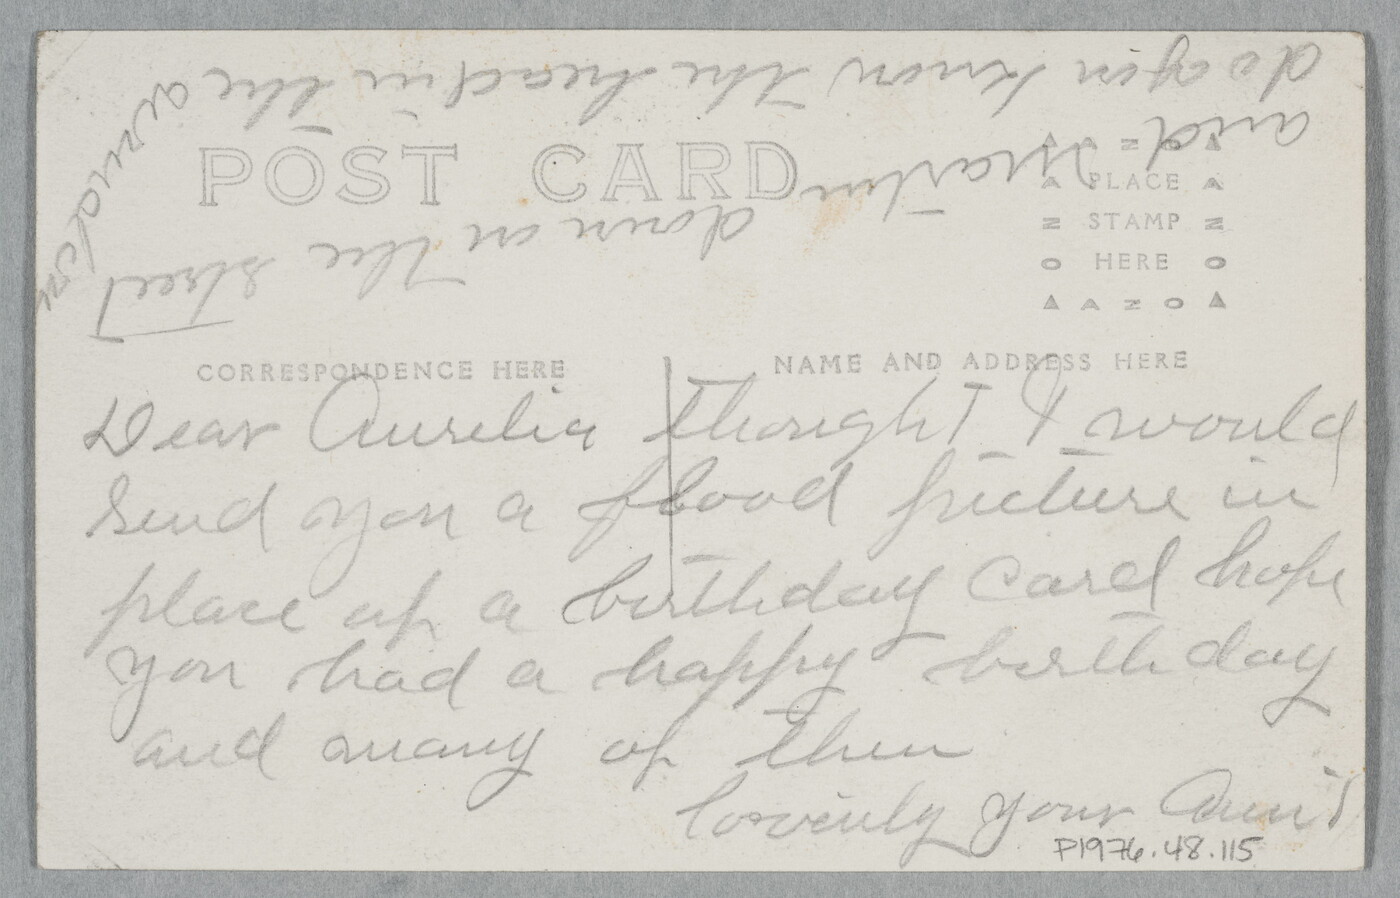 POST CARD
AZO
PLACE
STAMP
HERE
AZO
CORRESPONDENCE HERE
NAME AND ADDRESS HERE
Dear Aurelia thought I would
send you a flood picture in
place of a birthday card hope
you had a happy birthday
and many of them
lovinly your Aunt
do you know the head in the window
and Martin
down on the street
P1976.48.115